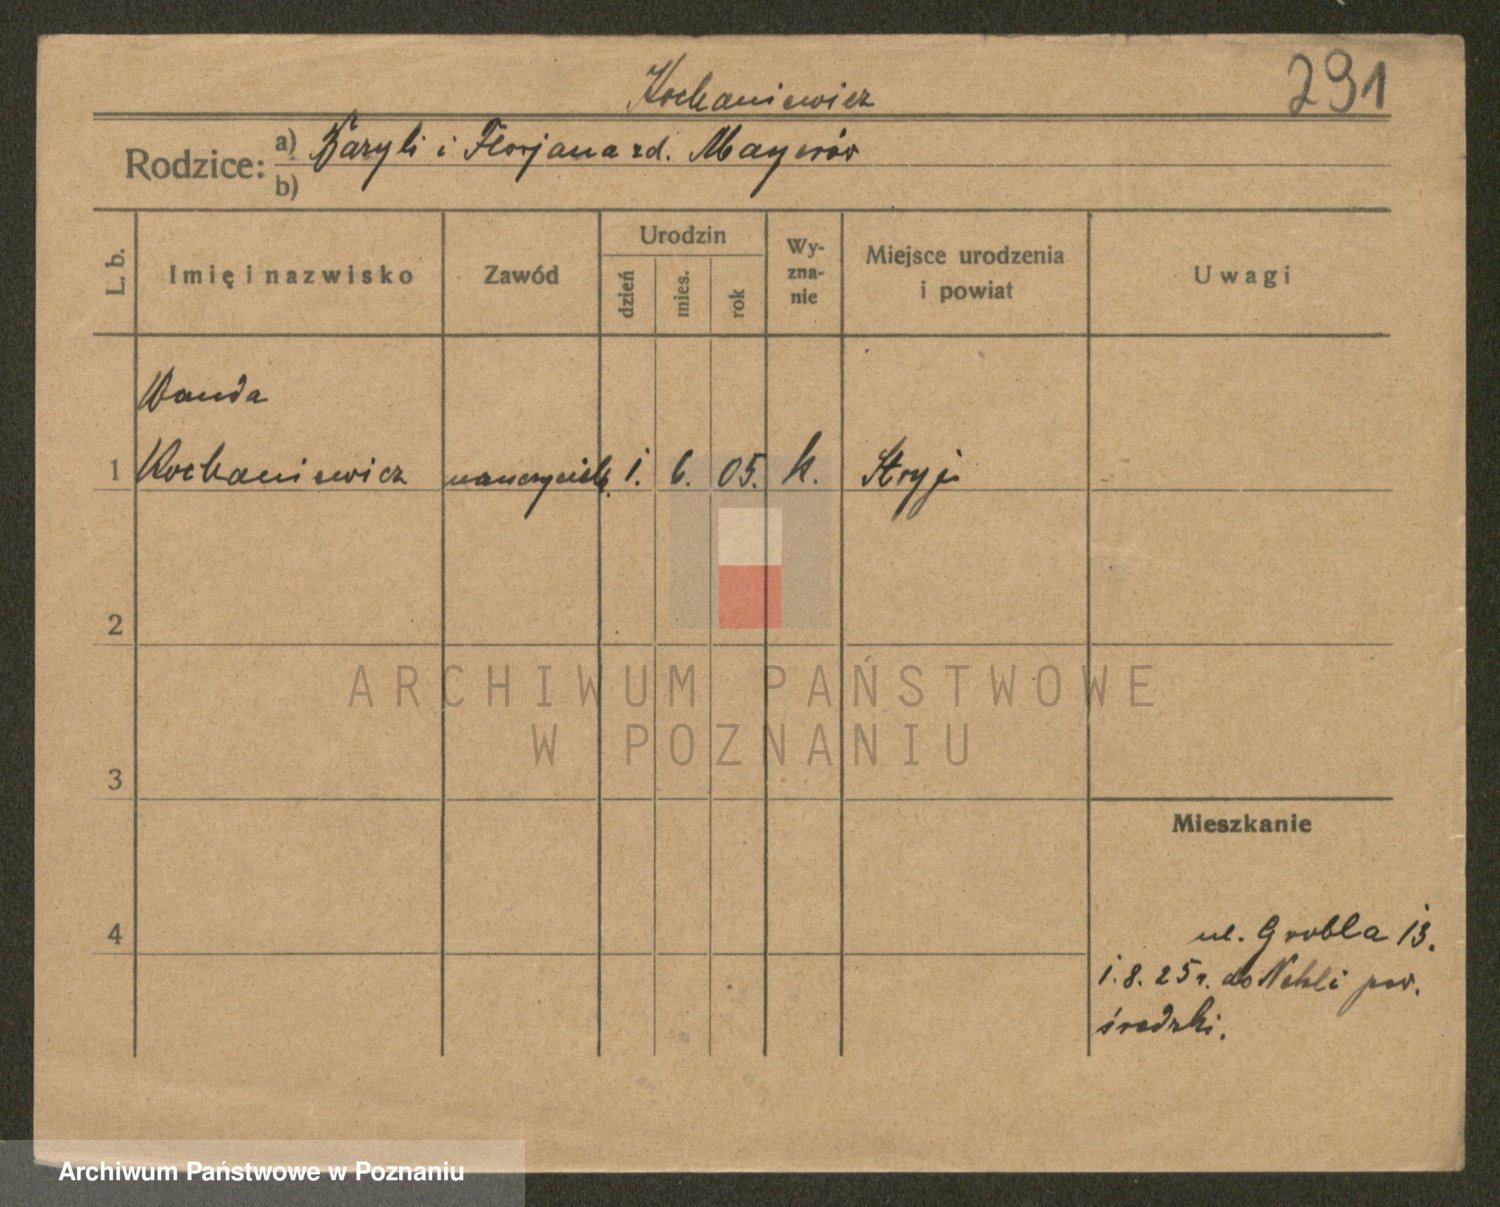 Kochaniewicz
291
Rodzice: a) Bazyli i Florjana zd. Mayerów
b)
L. b.
Imię i nazwisko
Zawód
Urodzin
dzień
mies.
rok
Wy-
zna-
nie
Miejsce urodzenia
i powiat
Uwagi
Wanda
1 Kochaniewicz nauczycielk. 1. 6. 05. k. Stryj
2
3
4
Mieszkanie
ul. Grobla 13.
1.8.25 r. do Nekli pow.
średzki.
ARCHIWUM PAŃSTWOWE
W POZNANIU
Archiwum Państwowe w Poznaniu